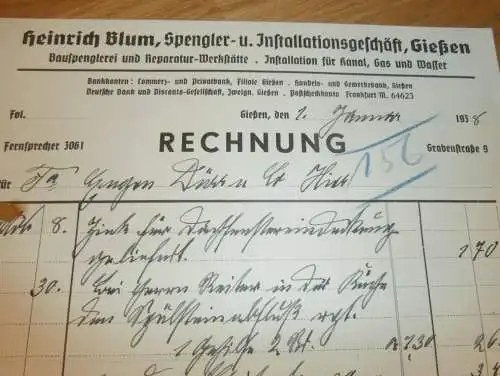 Heinrich Blum, Spengler- u. Installationsgeschäft, Gießen
Bauspenglerei und Reparatur-Werkstätte . Installation für Kanal, Gas und Wasser
Bankkonten: Commerz- und Privatbank, Filiale Gießen . Handels- und Gewerbebank, Gießen
Deutsche Bank und Disconto-Gesellschaft, Zweign. Gießen . Postscheckkonto Frankfurt M. 64623
Fol. Gießen, den 1. Januar 1938
Fernsprecher 3061 RECHNUNG Grabenstraße 9
156
für Fa Eugen Dürr u Co Hier
8. Zink für Dachfenstereindeckung
geliefert. 1 70
30. bei Herrn Reiter in der Küche
den Spülsteinabfluß rep.
1 Gehilfe 2 St. a 1.30 2 6